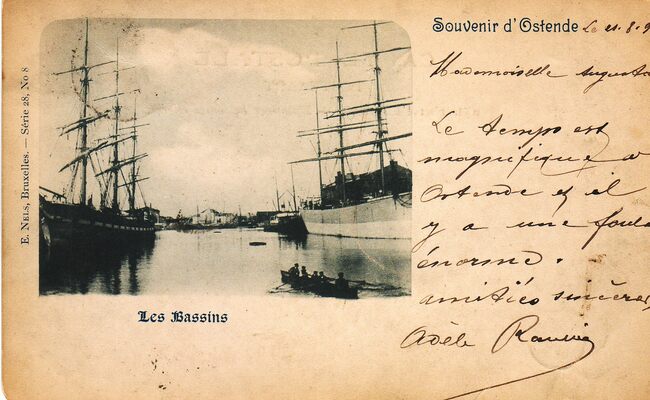 Souvenir d'Ostende Le 21.8.9
Mademoiselle Augusta
Le temps est
magnifique à
Ostende et il
y a une foule
énorme.
amitiés sincères
Adèle
Les Bassins
E. Nels, Bruxelles. — Série 28, No 8